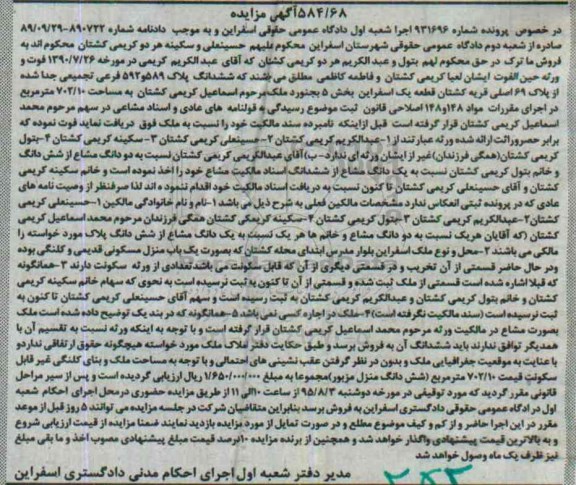 ۵۸۴/۶۸ آگهی مزایده
در خصوص پرونده شماره ۹۳۱۶۹۶ اجرا شعبه اول دادگاه عمومی حقوقی اسفراین و به موجب دادنامه شماره ۸۹۰۷۲۲-۸۹/۰۹/۲۹
صادره از شعبه دوم دادگاه عمومی حقوقی شهرستان اسفراین محکوم علیهم حسینعلی و سکینه هر دو کریمی کشتان محکوم اند به
فروش ما ترک در حق محکوم لهم بتول و عبدالکریم هر دو کریمی کشتان که آقای عبدالکریم کریمی در مورخه ۱۳۹۰/۷/۲۶ فوت و
ورثه حین الفوت ایشان لعیا کریمی کشتان و فاطمه کاظمی مطلق می باشند که ششدانگ پلاک ۵۸۹و۵۹۲ فرعی تجمیعی جدا شده
از پلاک ۶۹ اصلی قریه کشتان قطعه یک اسفراین بخش ۵ بجنورد ملک مرحوم اسماعیل کریمی کشتان به مساحت ۷۰۲/۱۰ مترمربع
در اجرای مقررات مواد ۱۴۸و۱۴۷ اصلاحی قانون ثبت موضوع رسیدگی به قولنامه های عادی و اسناد مشاعی در سهم مرحوم محمد
اسماعیل کریمی کشتان قرار گرفته است قبل ازاینکه نامبرده سند مالکیت خود را نسبت به ملک فوق دریافت نماید فوت نموده که
برابر حصروراثت ارائه شده ورثه عبارتند از ۱-عبدالکریم کریمی کشتان ۲-حسینعلی کریمی کشتان ۳-سکینه کریمی کشتان ۴-بتول
کریمی کشتان(همگی فرزندان)غیر از ایشان ورثه ای ندارد- ب) آقای عبدالکریمی کریمی کشتان نسبت به دو دانگ مشاع از شش دانگ
و خانم بتول کریمی کشتان نسبت به یک دانگ مشاع از ششدانگ اسناد مالکیت مشاع خود را اخذ نموده است و خانم سکینه کریمی
کشتان و آقای حسینعلی کریمی کشتان تا کنون نسبت به دریافت اسناد مالکیت خود اقدام ننموده اند لذا صرفنظر از وصیت نامه های
عادی که در پرونده ثبتی انعکاس ندارد مشخصات مالکین فعلی به شرح ذیل می باشد ۱-نام و نام خانوادگی مالکین ۱-حسینعلی کریمی
کشتان۲-عبدالکریم کریمی کشتان ۳-بتول کریمی کشتان ۴-سکینه کریمی کشتان همگی فرزندان مرحوم محمد اسماعیل کریمی
کشتان (که آقایان هریک نسبت به دو دانگ مشاع و خانم ها هر یک نسبت به یک دانگ مشاع از شش دانگ پلاک مورد خواسته را
مالکی می باشند ۲-محل و نوع ملک اسفراین بلوار مدرس ابتدای محله کشتان که بصورت یک باب منزل مسکونی قدیمی و کلنگی بوده
ودر حال حاضر قسمتی از آن تخریب و در قسمتی دیگری از آن که قابل سکونت می باشد تعدادی از ورثه سکونت دارند ۳-همانگونه
که قبلا اشاره شده است قسمتی از ملک ثبت شده و قسمتی از آن تا کنون به ثبت نرسیده است به نحوی که سهام خانم سکینه کریمی
کشتان و خانم بتول کریمی کشتان و عبدالکریم کریمی کشتان به ثبت رسیده است و سهم آقای حسینعلی کریمی کشتان تا کنون به
ثبت نرسیده است (سند مالکیت نگرفته است)۴-ملک در اجاره کسی نمی باشد ۵-همانگونه که در بند یک توضیح داده شده است ملک
بصورت مشاع در مالکیت ورثه مرحوم محمد اسماعیل کریمی کشتان قرار گرفته است و با توجه به اینکه ورثه نسبت به تقسیم آن با
همدیگر توافق ندارند باید ششدانگ آن به فروش برسد و طبق حکایت دفتر املاک ملک مورد خواسته هیچگونه حقوق ارتفاقی نداردو
با عنایت به موقعیت جغرافیایی ملک و بدون در نظر گرفتن عقب نشینی های احتمالی و با توجه به مساحت ملک و بنای کلنگی غیر قابل
سکونت قیمت ۷۰۲/۱۰ مترمربع (شش دانگ منزل مزبور)مجموعا به مبلغ ۱/۶۵۰/۰۰۰/۰۰۰ ریال ارزیابی گردیده است و پس از سیر مراحل
قانونی مقرر گردید که مورد توقیفی در مورخه دوشنبه ۹۵/۸/۳ از ساعت ۱۰الی ۱۱ از طریق مزایده حضوری درمحل اجرای احکام شعبه
اول در ادگاه عمومی حقوقی دادگستری اسفراین به فروش برسد بنابراین متقاضیان شرکت در جلسه مزایده می توانند ۵ روز قبل از موعد
مقرر در این اجرا حاضر و از کم و کیف موضوع مطلع و در صورت تمایل از مورد مزایده بازدید نمایند ضمنا مزایده از قیمت ارزیابی شروع
و به بالاترین قیمت پیشنهادی واگذار خواهد شد و همچنین از برنده مزایده ۱۰درصد قیمت مبلغ پیشنهادی مصوب اخذ و ما بقی مبلغ
نیز ظرف یک ماه وصول خواهد شد
مدیر دفتر شعبه اول اجرای احکام مدنی دادگستری اسفراین